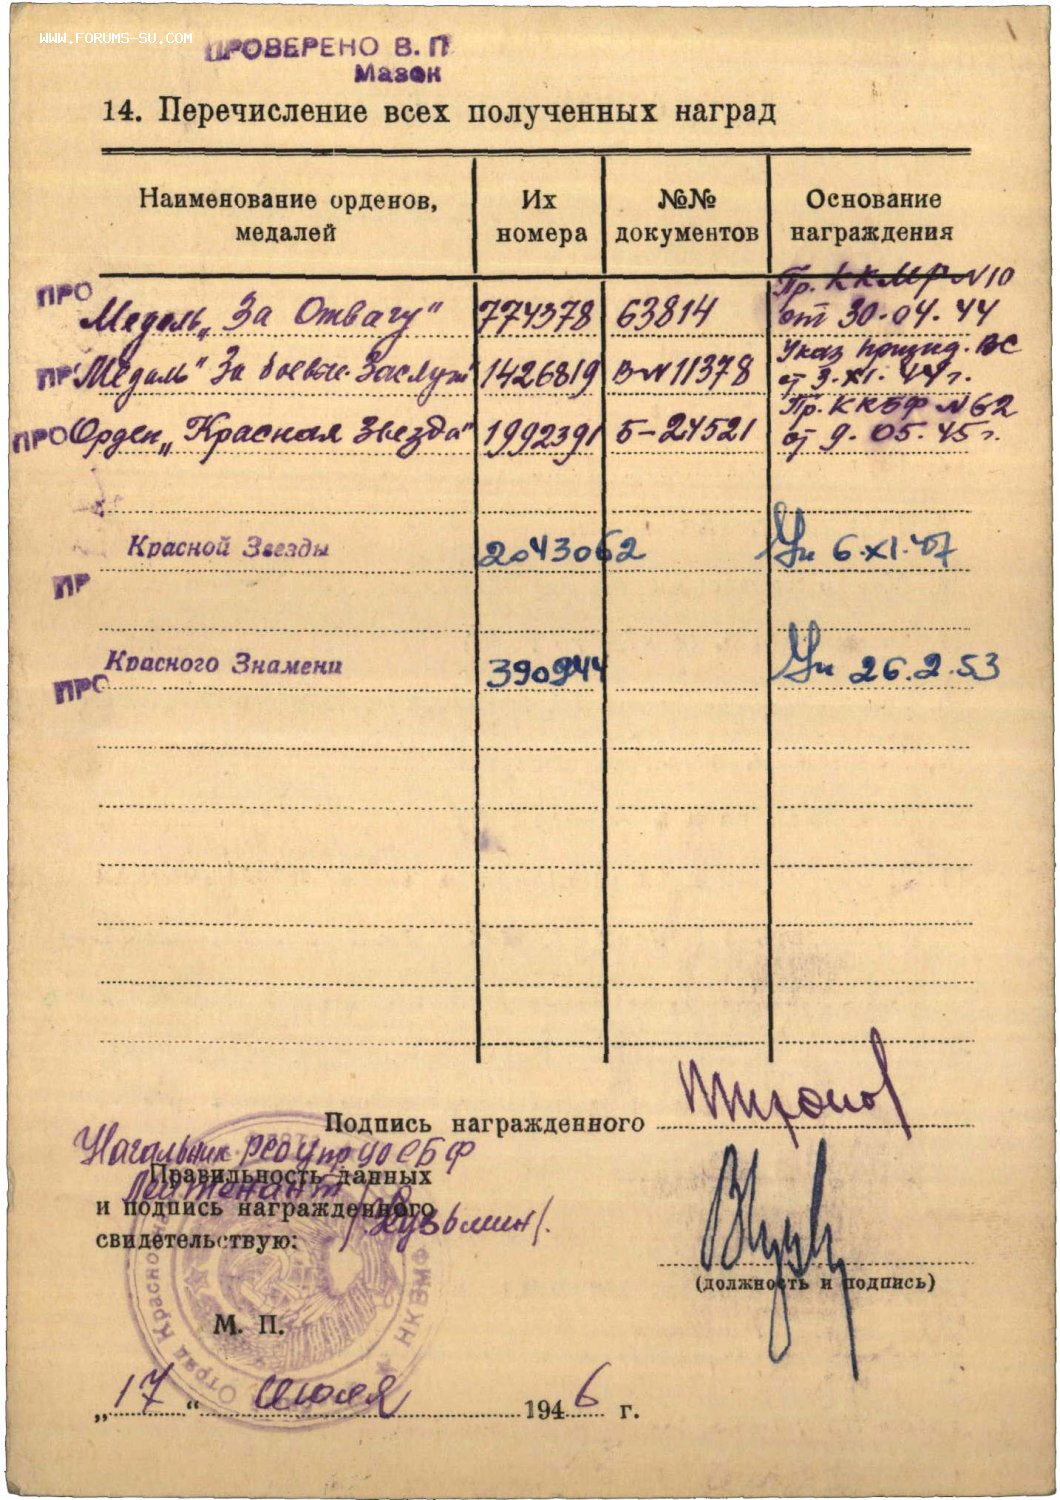 WWW.FORUMS-SU.COM
ПРОВЕРЕНО В. П
Мазок
14. Перечисление всех полученных наград
Наименование орденов, медалей
Их номера
№№ документов
Основание награждения
ПРО Медаль „За Отвагу" 774378 63814 Пр. ККМР №10 от 30.04.44
ПР Медаль "За боевые Заслуги" 1426819 В№11378 Указ през. ВС от 3.XI.44г.
ПРО Орден „Красная Звезда" 1992391 Б-24521 Пр. ККБФ №62 от 9.05.45г.
Красной Звезды 2043062 Ук 6.XI.47
ПР
Красного Знамени 390944 Ук 26.2.53
ПРО
Подпись награжденного
Начальник
Правильность данных
Лейтенант
и подпись награжденного
/Кузьмин/.
свидетельствую:
(должность и подпись)
М. П.
Отряд Красно НКВМФ
„17“ июля 1946 г.